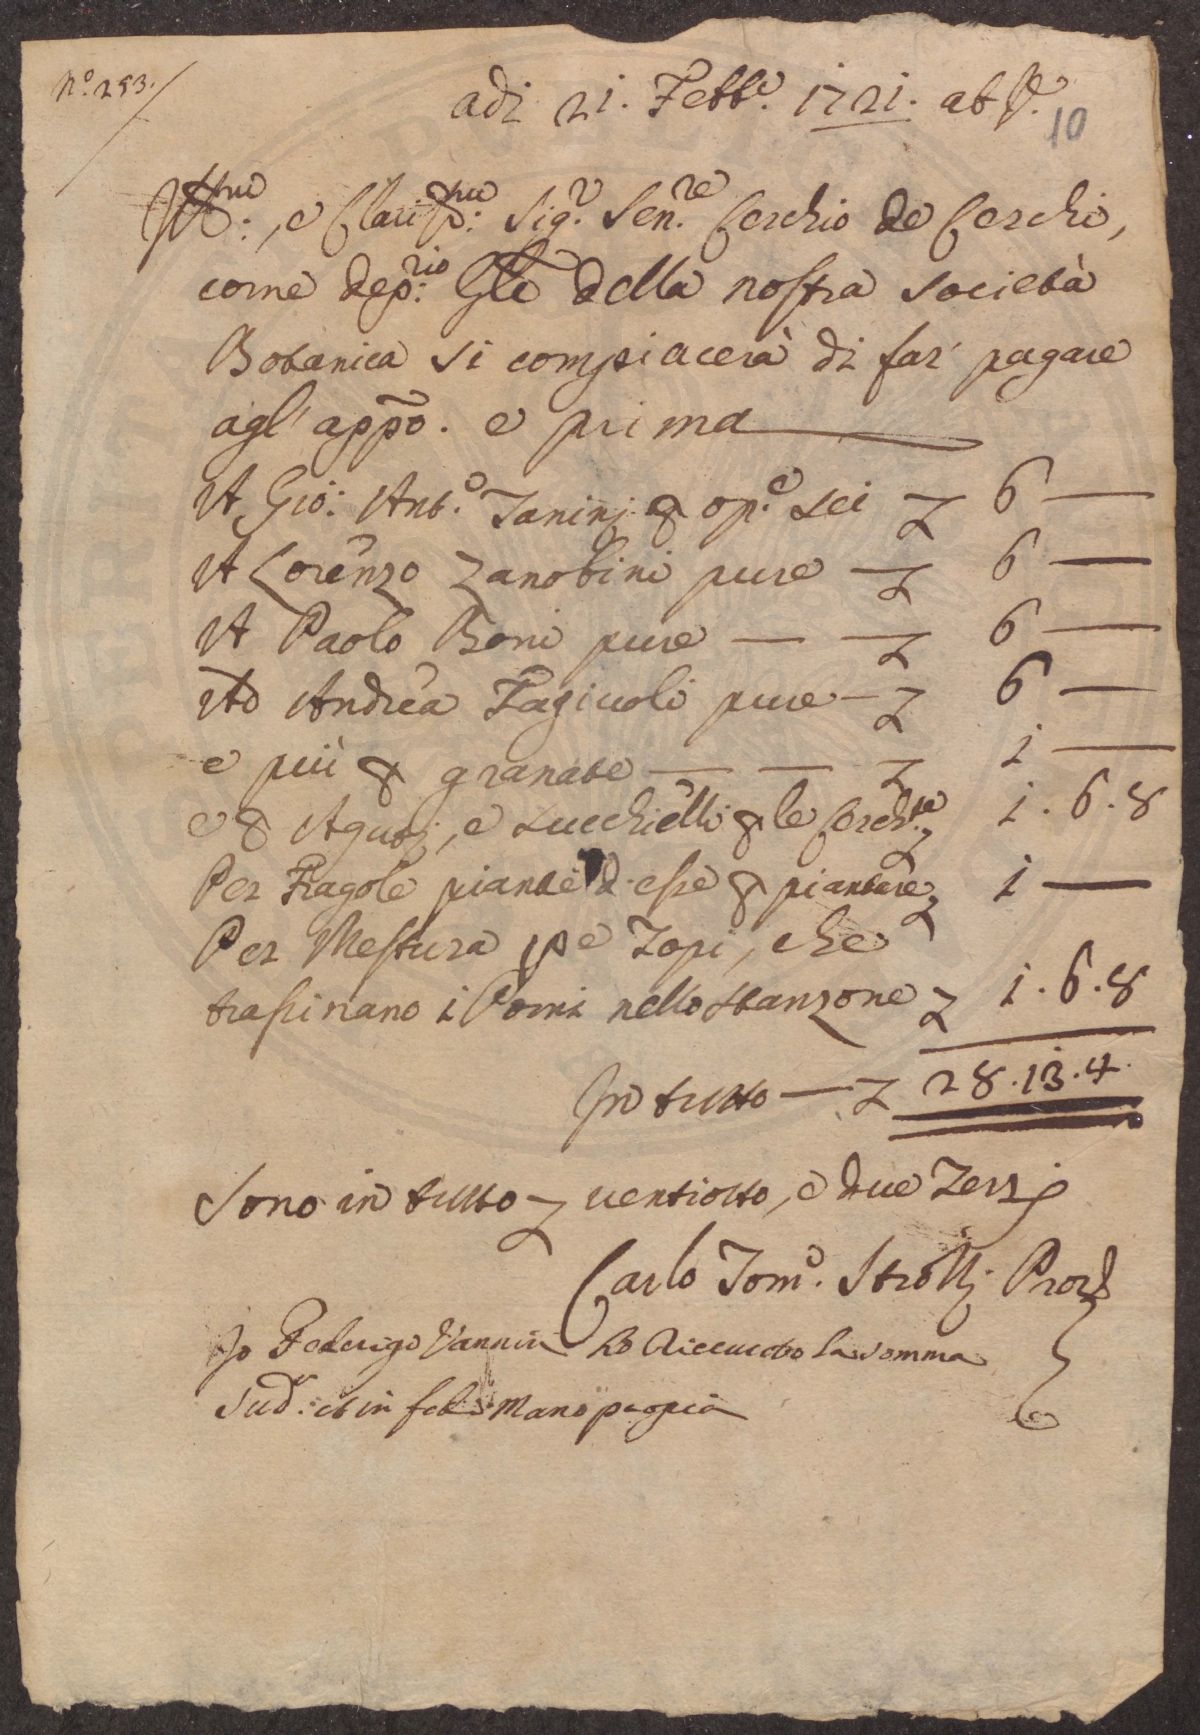 N.o 253.
adi 21. Febb.e 1721. ab I.
10
Ill.mo: e Clariss.mo: Sig.r Sen.re Cerchio de Cerchi,
come dep:rio Gle della nostra società
Botanica si compiacerà di far' pagare
agl' appo. e prima
A Gio: Ant.o Tanini p op.e sei £ 6 —
A Lorenzo Zanobini pure — £ 6 —
A Paolo Boni pure — — £ 6 —
Ad Andrea Fagiuoli pure — £ 6 —
e più p granate — — £ 1 —
e p Aguti, e succhielli p le Cerch.te £ 1. 6. 8
Per Fragole piante d'esse p piantare £ 1 —
Per Mestura pe Topi, che
trassinano i Pomi nello stanzone £ 1. 6. 8
In tutto — £ 28. 13. 4.
Sono in tutto £ ventiotto, e due Terzi
Carlo Tom.o Strozzi
Io Federigo Vannini ho Riceuuto la somma
Sud.: et in fede Mano propria